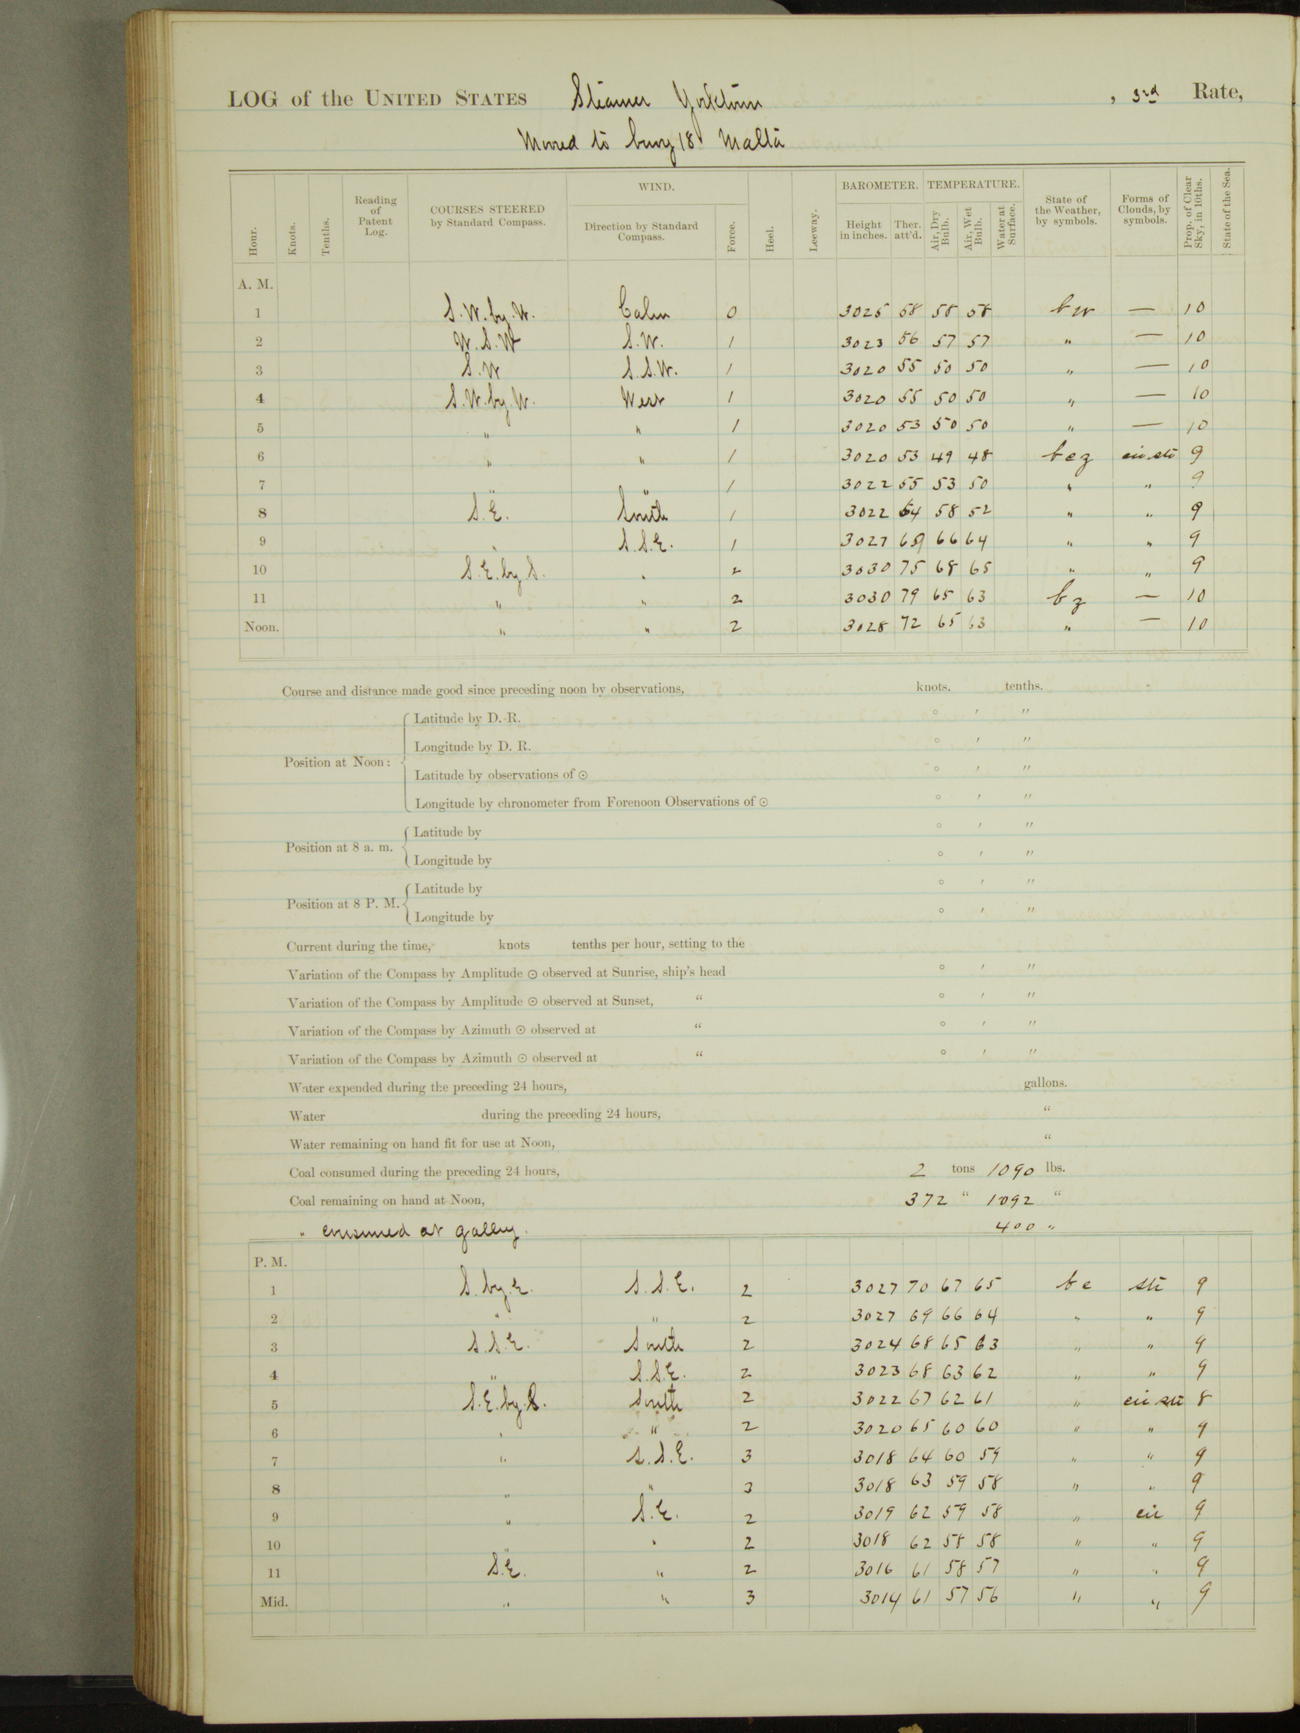 LOG of the UNITED STATES Steamer Yorktown , 3rd Rate,
Moored to buoy 18 Malta
Hour. Knots. Tenths. Reading of Patent Log. COURSES STEERED by Standard Compass. WIND. Direction by Standard Compass. Force. Heel. Leeway. BAROMETER. Height in inches. Ther. att'd. TEMPERATURE. Air, Dry Bulb. Air, Wet Bulb. Water at Surface. State of the Weather, by symbols. Forms of Clouds, by symbols. Prop. of Clear Sky, in 10ths. State of the Sea.
A. M.
1 S.W. by W. Calm 0 3025 58 58 58 bw — 10
2 W.S.W S.W. 1 3023 56 57 57 " — 10
3 S.W S.S.W. 1 3020 55 50 50 " — 10
4 S.W. by W. West 1 3020 55 50 50 " — 10
5 " " 1 3020 53 50 50 " — 10
6 " " 1 3020 53 49 48 bcz cir.str 9
7 " " 1 3022 55 53 50 " " 9
8 S.E. South 1 3022 64 58 52 " " 9
9 " S.S.E. 1 3027 69 66 64 " " 9
10 S.E. by S. " 2 3030 75 68 65 " " 9
11 " " 2 3030 79 65 63 bz — 10
Noon. " " 2 3028 72 65 63 " — 10
Course and distance made good since preceding noon by observations, knots. tenths.
Position at Noon: Latitude by D. R. ° ′ ″
Longitude by D. R. ° ′ ″
Latitude by observations of ☉ ° ′ ″
Longitude by chronometer from Forenoon Observations of ☉ ° ′ ″
Position at 8 a. m. Latitude by ° ′ ″
Longitude by ° ′ ″
Position at 8 P. M. Latitude by ° ′ ″
Longitude by ° ′ ″
Current during the time, knots tenths per hour, setting to the
Variation of the Compass by Amplitude ☉ observed at Sunrise, ship's head ° ′ ″
Variation of the Compass by Amplitude ☉ observed at Sunset, " ° ′ ″
Variation of the Compass by Azimuth ☉ observed at " ° ′ ″
Variation of the Compass by Azimuth ☉ observed at " ° ′ ″
Water expended during the preceding 24 hours, gallons.
Water during the preceding 24 hours, "
Water remaining on hand fit for use at Noon, "
Coal consumed during the preceding 24 hours, 2 tons 1090 lbs.
Coal remaining on hand at Noon, 372 " 1092 "
" consumed at galley. 400 "
P. M.
1 S. by E. S.S.E. 2 3027 70 67 65 bc str 9
2 " " 2 3027 69 66 64 " " 9
3 S.S.E. South 2 3024 68 65 63 " " 9
4 " S.S.E. 2 3023 68 63 62 " " 9
5 S.E. by S. South 2 3022 67 62 61 " cir str 8
6 " " 2 3020 65 60 60 " " 9
7 " S.S.E. 3 3018 64 60 59 " " 9
8 " " 3 3018 63 59 58 " " 9
9 " S.E. 2 3019 62 59 58 " cir 9
10 " " 2 3018 62 58 58 " " 9
11 S.E. " 2 3016 61 58 57 " " 9
Mid. " " 3 3014 61 57 56 " " 9